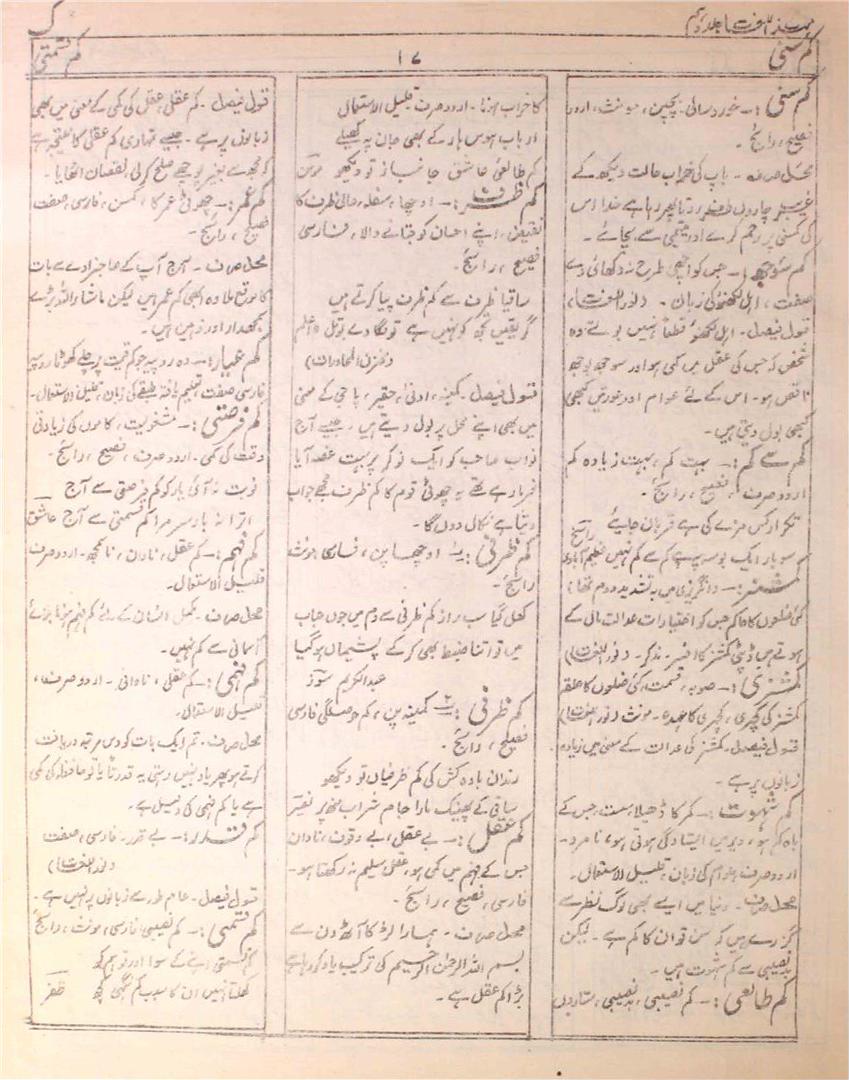 مہذب اللغات جلد دہم
ک
کم سنی
۱۷
کم قسمتی
کم سنی :۔ خورد سالی۔ بچپن، مونث، اردو
فصیح، رائج۔
محل صرف ۔ باپ کی خراب حالت دیکھ کے
غریب چاروں طرف روتا پھر رہا ہے خدا اس
کی کمسنی پر رحم کرے اور یتیمی سے بچائے۔
کم سوجھ :۔ جس کو اچھی طرح نہ دکھائی دے
صفت، اہل لکھنؤ کی زبان۔ (نور اللغات)
قول فیصل۔ اہل لکھنؤ قطعاً نہیں بولتے وہ
شخص کہ جس کی عقل میں کمی ہو اور سوجھ بوجھ
ناقص ہو۔ اس کے لئے عوام اور عورتیں کبھی
کبھی بول دیتی ہیں۔
کم سے کم :۔ بہت کم، بہت زیادہ کم
اردو صرف، فصیح، رائج۔
تکرار کس مزے کی ہے قربان جایئے
سو بار ایک بوسہ پہ ہے کم سے کم نہیں عظیم آبادی
کمشنر :۔ (انگریزی میں بہ تشدید دوم تھا)
کئی ضلعوں کا حاکم جس کو اختیارات عدالت مال کے
ہوتے ہیں ڈپٹی کمشنر کا افسر۔ مذکر۔ (نور اللغات)
کمشنری :۔ صوبہ، قسمت، کئی ضلعوں کا حلقہ
کمشنر کی کچہری، کچہری کا عہدہ۔ مونث (نور اللغات)
قول فیصل۔ کمشنر کی عدالت کے معنی میں زیادہ
زبانوں پر ہے۔
کم شہوت :۔ کمر کا ڈھیلا، سست، جس کے
باہ کم ہو، دیر میں ایستادگی ہوتی ہو، نامرد۔
اردو صرف، عوام کی زبان، قلیل الاستعمال۔
محل صرف۔ دنیا میں ایسے بھی لوگ نظر سے
گزرے ہیں کہ سن تو ان کا کم ہے۔ لیکن
بدنصیبی سے کم شہوت ہیں۔
کم طالعی :۔ کم نصیبی، بدنصیبی، ستاروں
کا خراب ہونا۔ اردو صرف قلیل الاستعمال
ارباب ہوس ہار کے بھی جان پہ کھیلے
کم طالعیِ عاشق جانباز تو دیکھو مومن
کم ظرف :۔ اوچھا، سفلہ، عالی ظرف کا
نقیض، اپنے احسان کو جتانے والا، فارسی
فصیح، رائج۔
ساقیا ظرف سے کم ظرف پیا کرتے ہیں
گر یقیں تجھ کو نہیں ہے تو لگا دے بوتل اعلم
(مخزن المحاورات)
قول فیصل۔ کمینہ، ادنیٰ، حقیر، پاجی کے معنی
میں بھی اپنے محل پر بول دیتے ہیں۔ جیسے آج
نواب صاحب کو ایک نوکر پر بہت غصہ آیا
فرما رہے تھے یہ چھوٹی قوم کا کم ظرف مجھے جواب
دیتا ہے نکال دوں گا۔
کم ظرفی :۔ اوچھا پن، فارسی مونث
رائج۔
کھل گیا سب راز کم ظرفی سے دم میں جوں حباب
میں تو اتنا ضبط بھی کر کے پشیماں ہو گیا
عبدالکریم سوز
کم ظرفی :۔ کمینہ پن، کم حوصلگی فارسی
فصیح، رائج۔
رندان بادہ کش کی کم ظرفیاں تو دیکھو
ساقی کے پھینک مارا جام شراب منہ پر
کم عقل :۔ بے عقل، بے وقوف، نادان
جس کے فہم میں کمی ہو، عقل سلیم نہ رکھتا ہو۔
فارسی، فصیح، رائج۔
محل صرف ۔ ہمارا لڑکا آٹھ دن سے
بسم اللہ الرحمٰن الرحیم کی ترکیب یاد کر رہا ہے
بڑا کم عقل ہے۔
قول فیصل۔ کم عقلی، عقل کی کمی کے معنی میں بھی
زبانوں پر ہے۔ جیسے تمہاری کم عقلی کا نتیجہ ہے
کہ مجھ سے بغیر پوچھے صلح کر لی نقصان اٹھایا۔
کم عمر :۔ چھوٹی عمر کا، کمسن، فارسی، صفت
فصیح، رائج۔
محل صرف ۔ آج آپ کے صاحبزادے سے بات
کا موقع ملا وہ ابھی کم عمر ہیں لیکن ماشاء اللہ بڑے
سمجھدار اور ذہین ہیں۔
کم عیار :۔ وہ روپیہ جو کم قیمت پر چلے کھوٹا روپیہ
فارسی صفت، تعلیم یافتہ طبقے کی زبان، قلیل الاستعمال۔
کم فرصتی :۔ مشغولیت، کاموں کی زیادتی
وقت کی کمی۔ اردو صرف، فصیح، رائج۔
نوبت نہ آئی یار کو کم فرصتی سے آج
اترا نہ بار سر مرا کم قسمتی سے آج عاشق
کم فہم :۔ کم عقل، نادان، ناسمجھ۔ اردو صرف
قلیل الاستعمال۔
محل صرف۔ مکمل انسان کے لئے کم فہم ہونا بلائے
آسمانی سے کم نہیں۔
کم فہمی :۔ کم عقلی، نادانی۔ اردو صرف،
قلیل الاستعمال۔
محل صرف۔ تم ایک بات کو دس مرتبہ دریافت
کرتے ہو پھر یاد نہیں رہتی یہ قدرتاً یا تو حافظہ کی کمی
ہے یا کم فہمی کی دلیل ہے۔
کم قدر :۔ بے قدر۔ فارسی، صفت
(نور اللغات)
قول فیصل۔ عام طور سے زبانوں پر نہیں ہے۔
کم قسمتی :۔ کم نصیبی، فارسی، مونث، رائج
کم قسمتی اپنے کے سوا اور تو ہم کو
کھلتا نہیں ان کا سبب کم نگہی کچھ ظفر